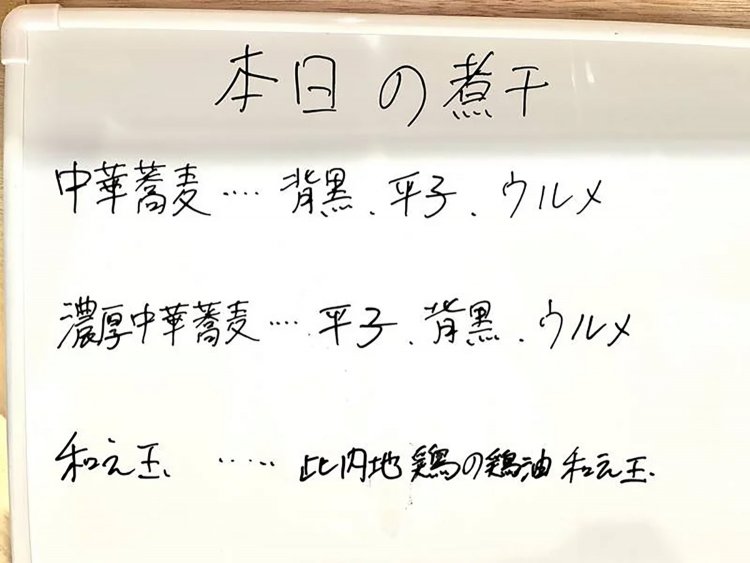 本日の煮干
中華蕎麦‥‥背黒、平子、ウルメ
濃厚中華蕎麦‥‥平子、背黒、ウルメ
和え玉‥‥‥比内地鶏の鶏油和え玉